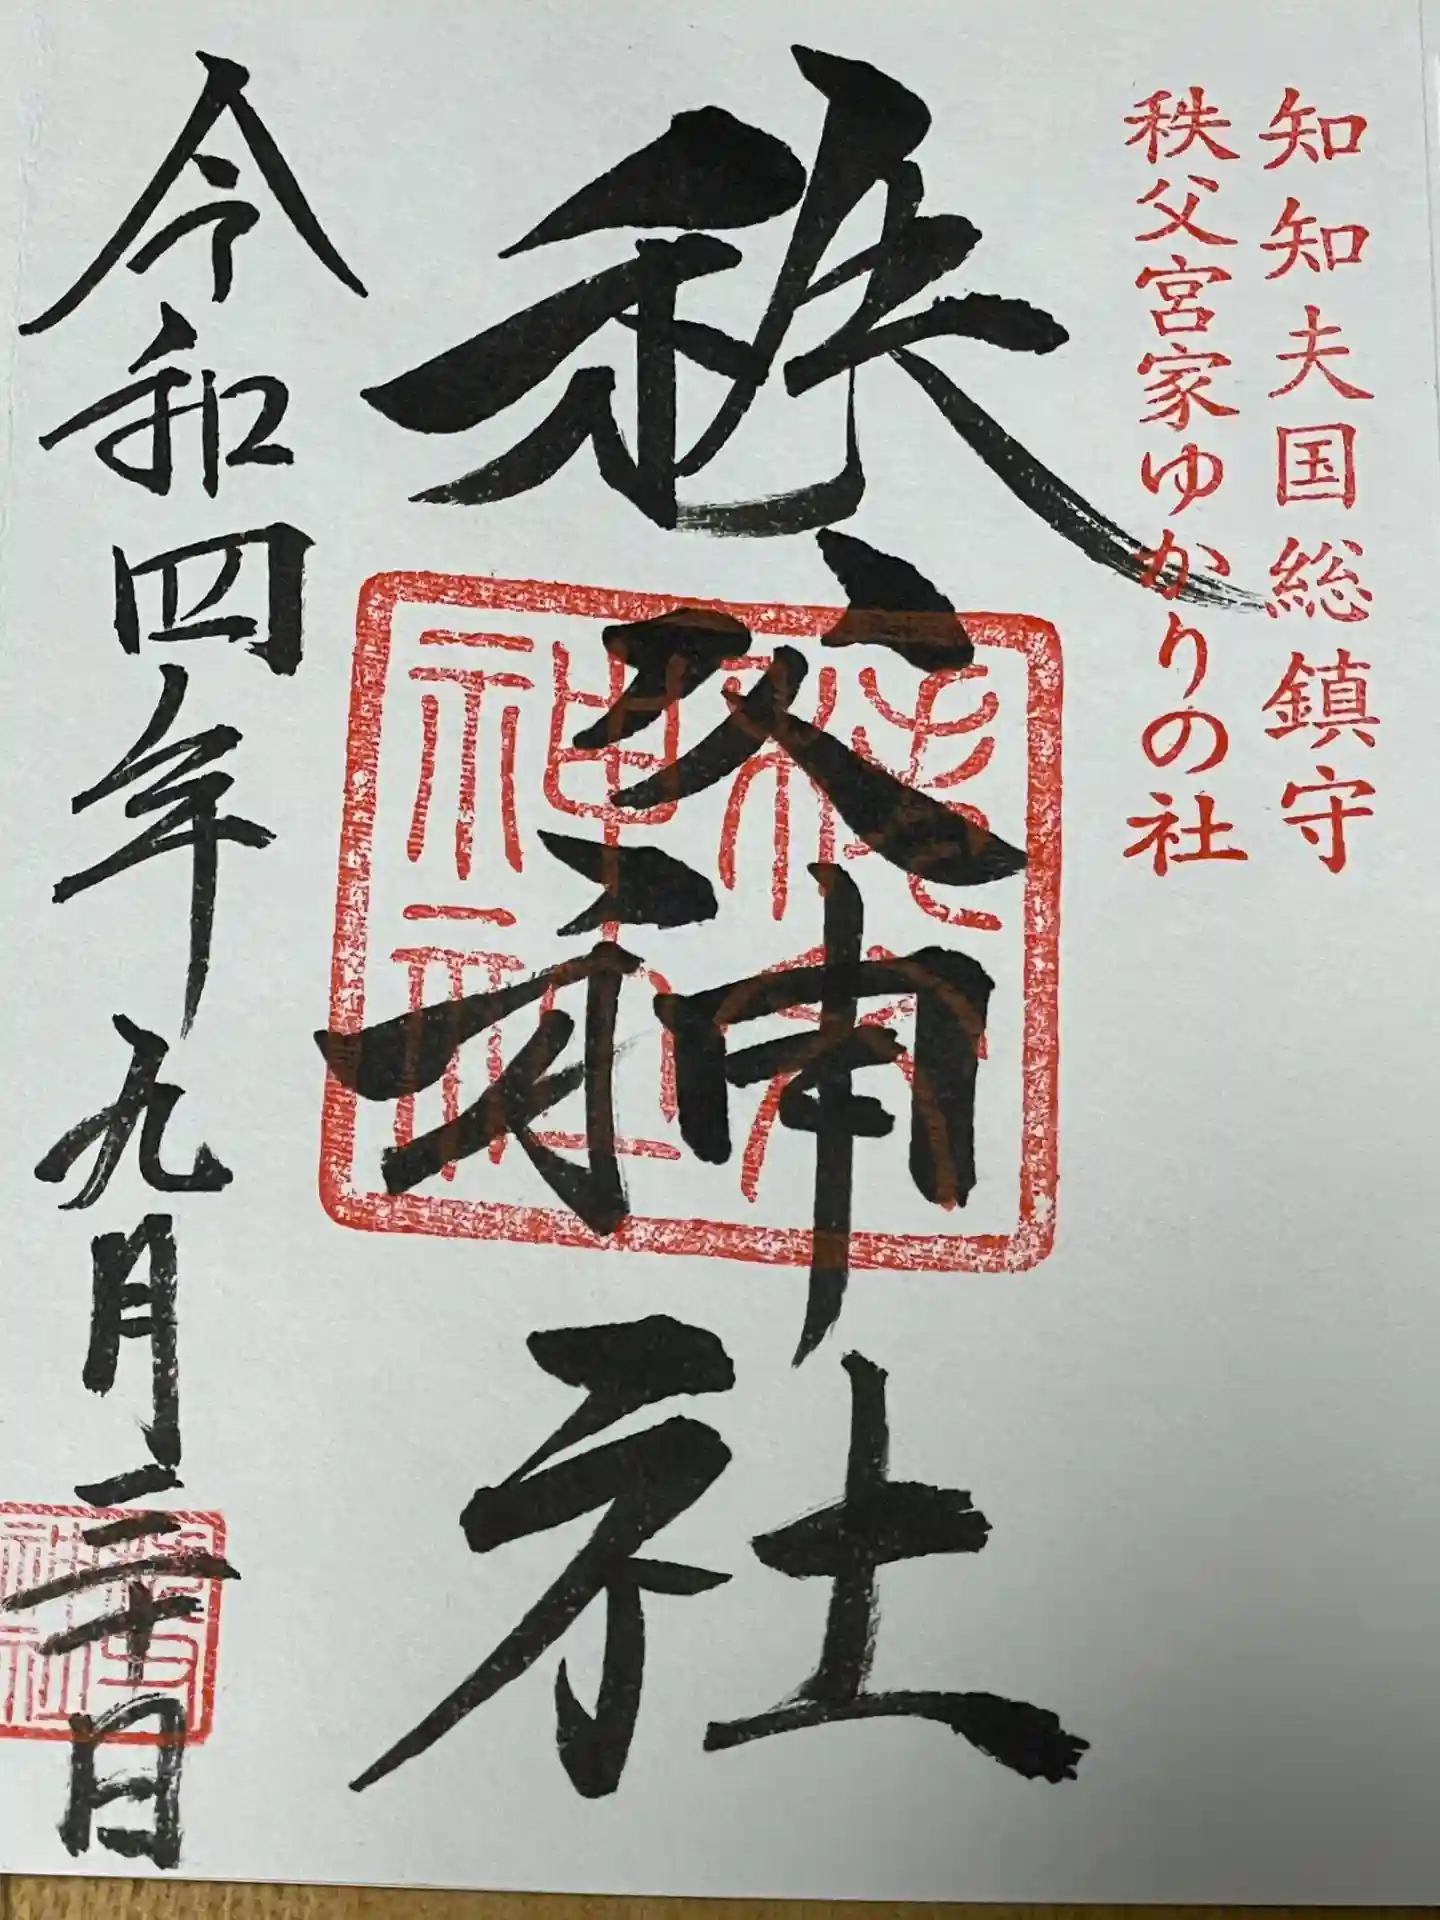 知知夫国総鎮守
秩父宮家ゆかりの社
秩父神社
秩父神社
令和四年九月三十日
秩父神社